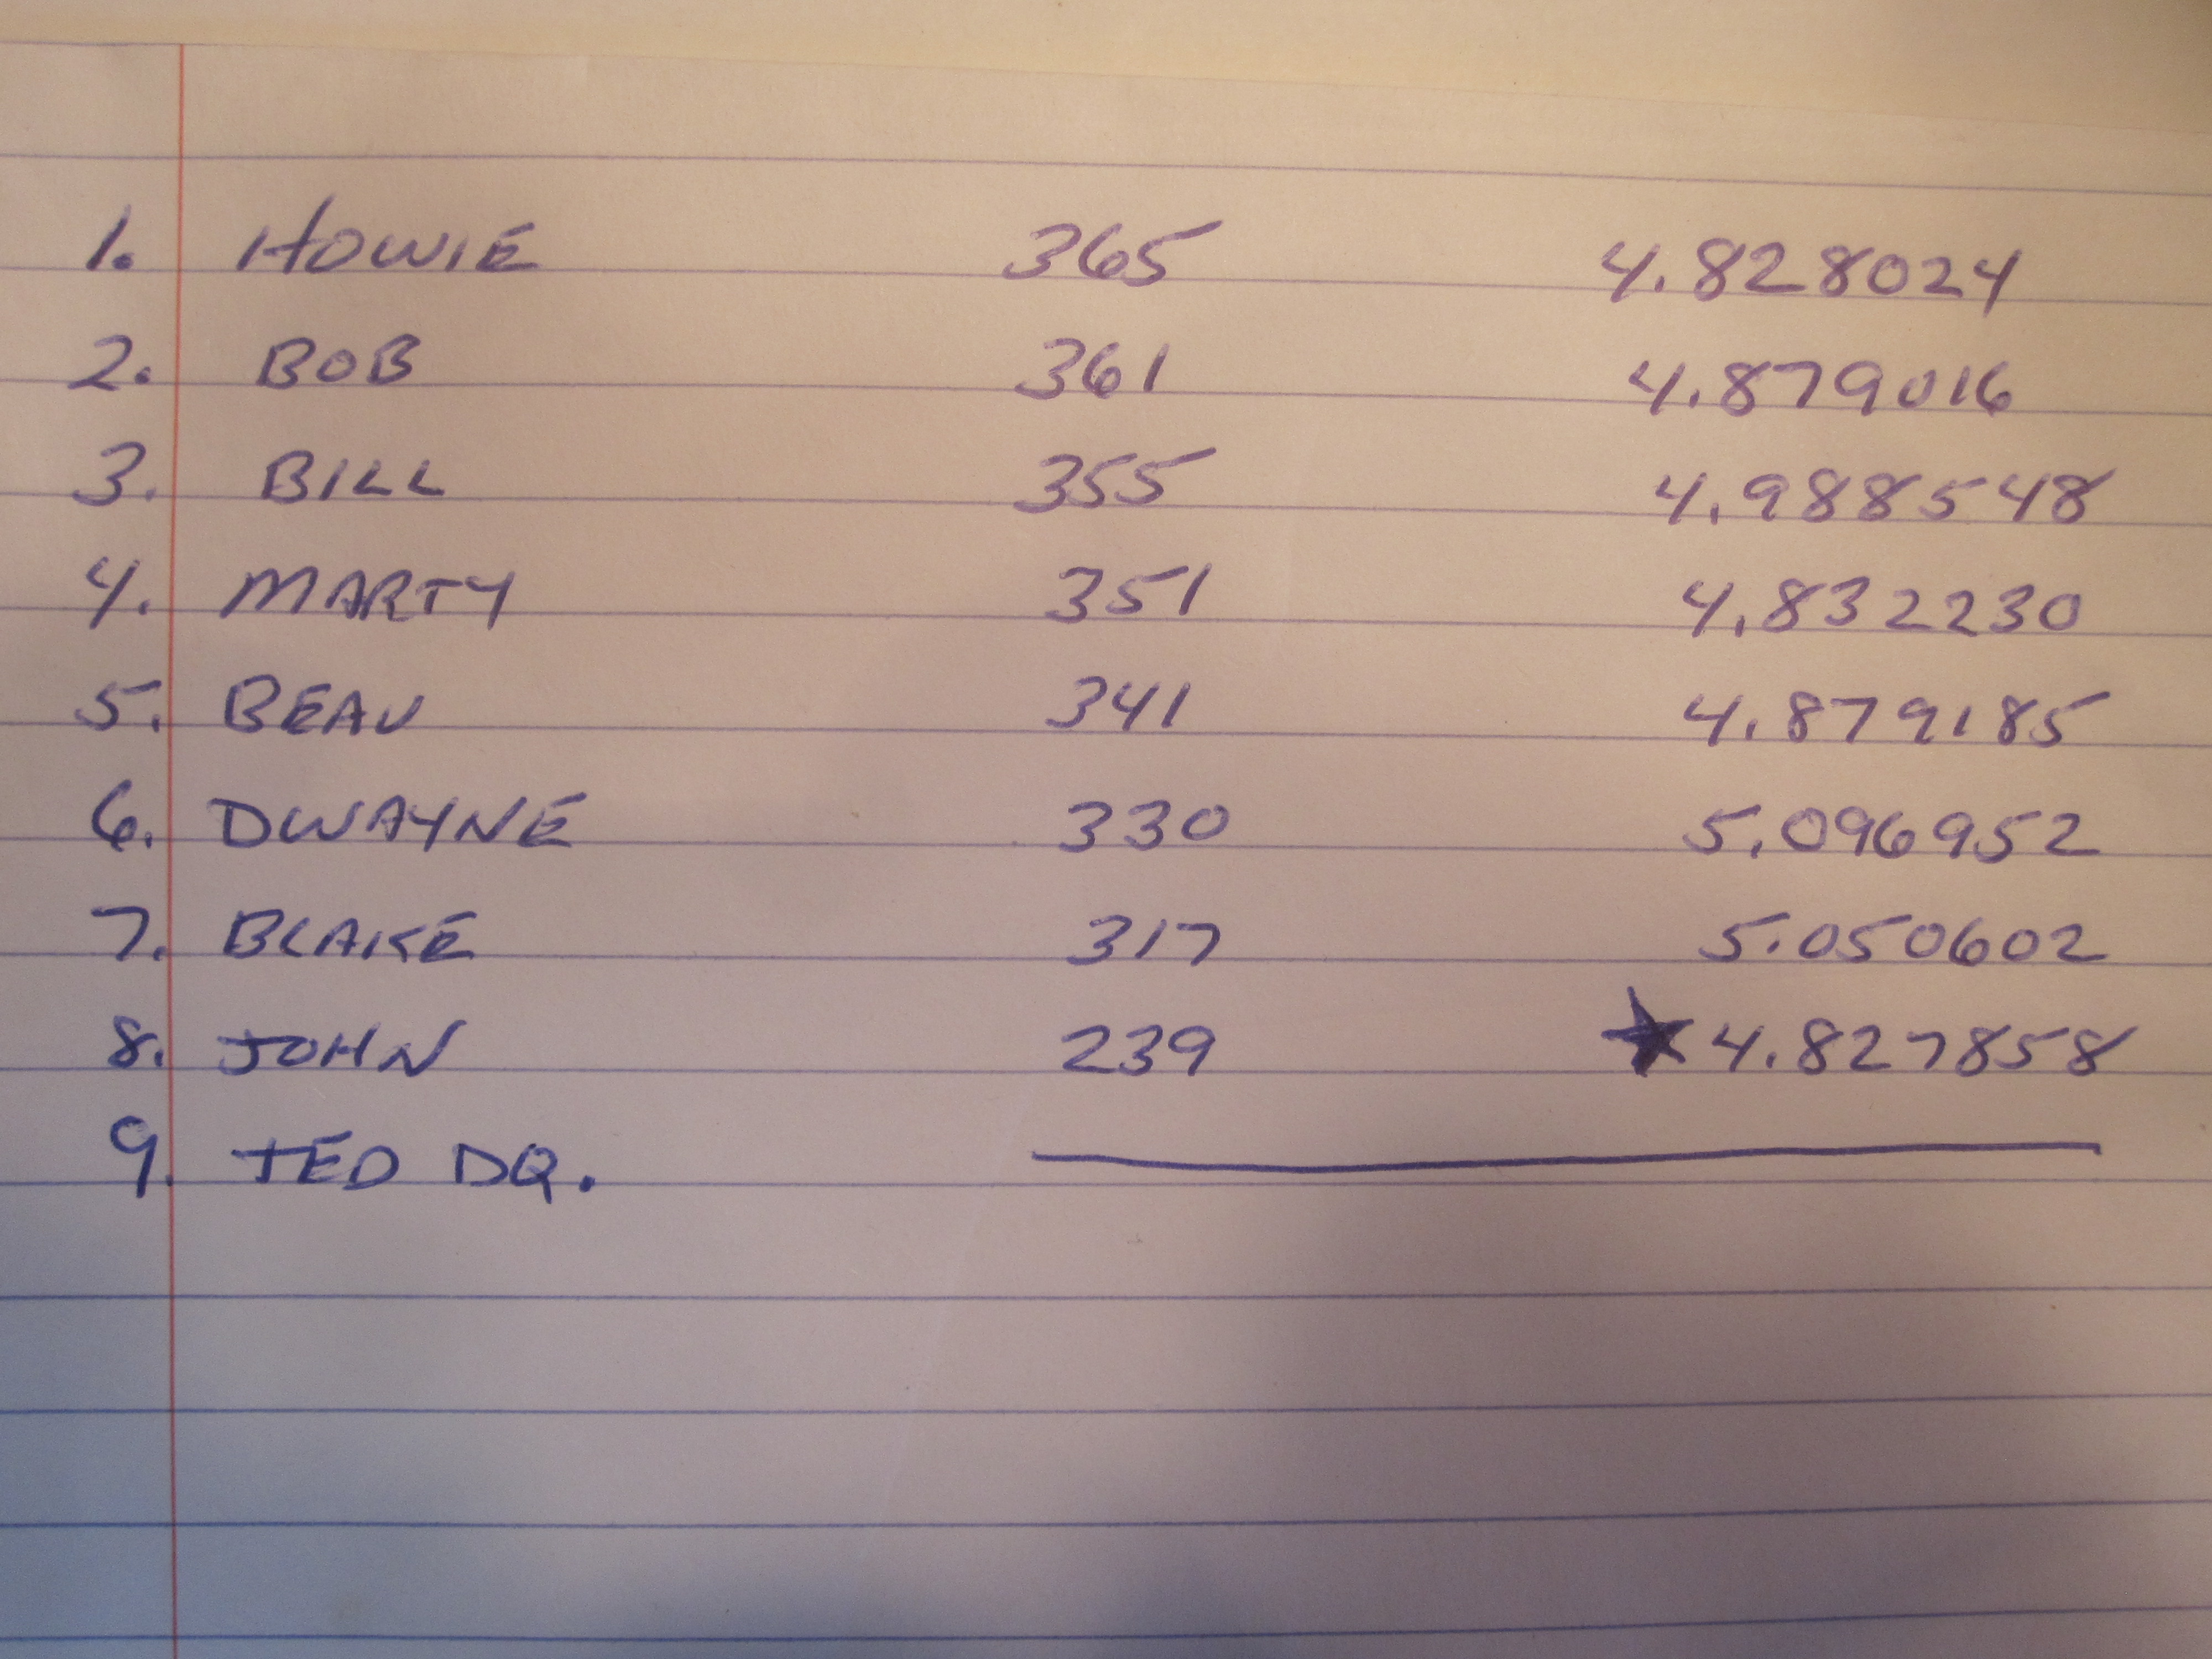 1. HOWIE 365 4.828024
2. BOB 361 4.879016
3. BILL 355 4.988548
4. MARTY 351 4.832230
5. BEAU 341 4.879185
6. DWAYNE 330 5.096952
7. BLAKE 317 5.050602
8. JOHN 239 ★4.827858
9. TED DQ.